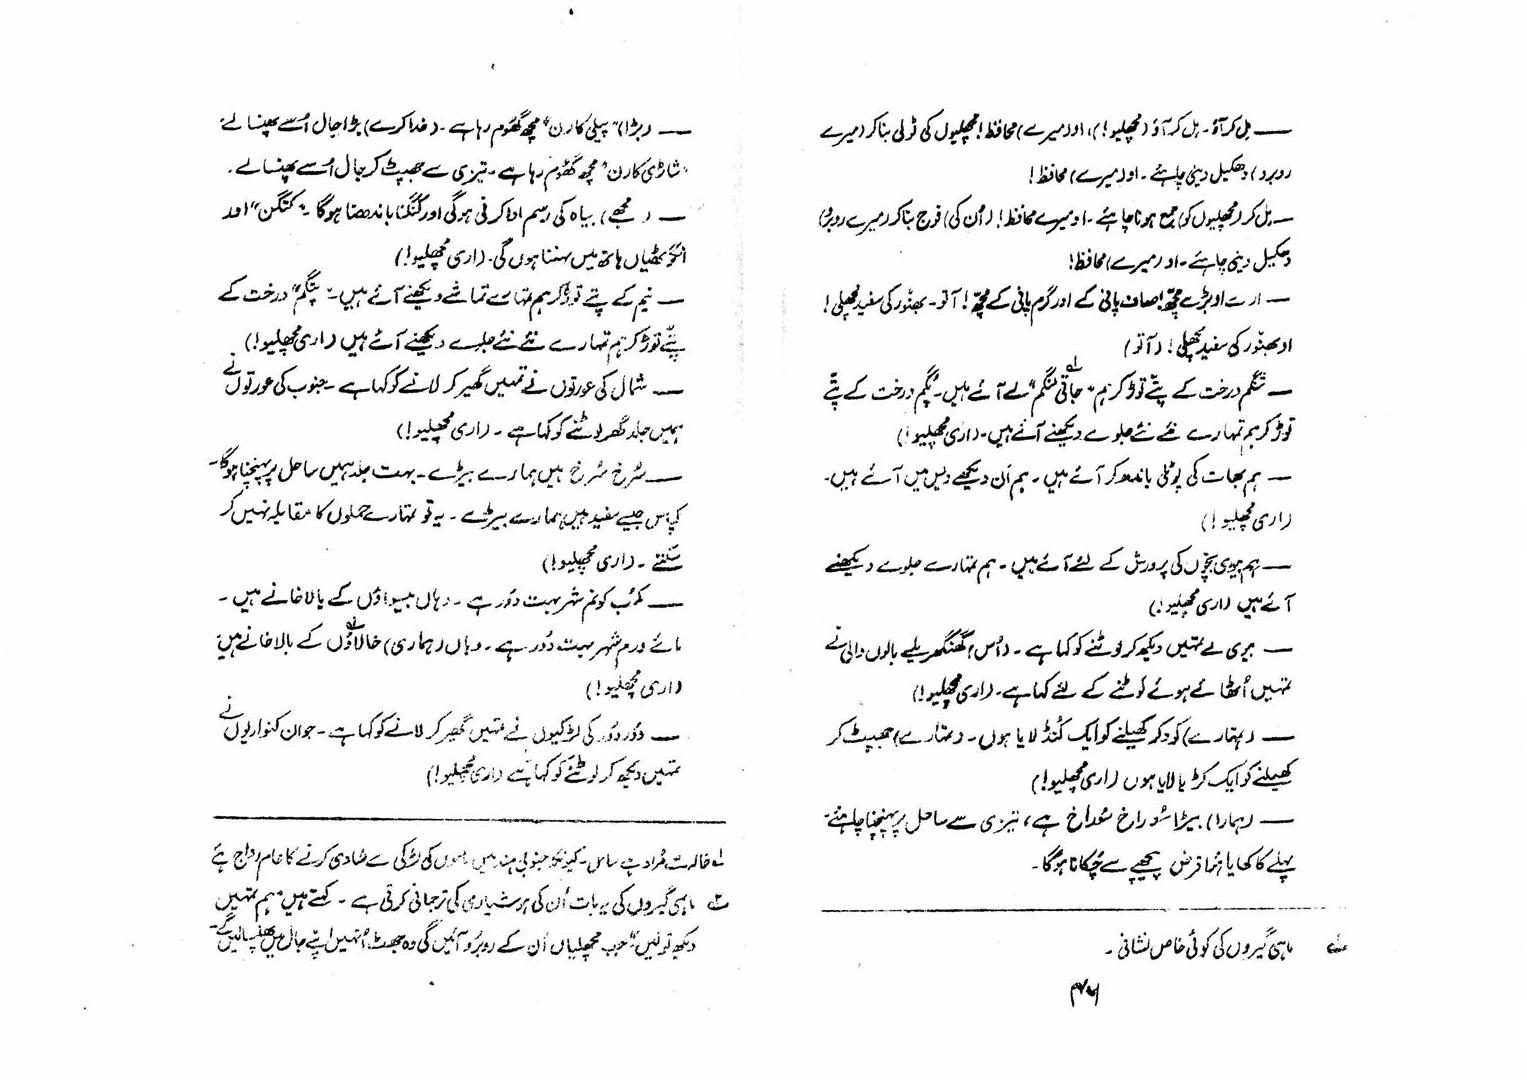 — مل کر آؤ۔ مل کر آؤ (مچھلیو!)، او (میرے) محافظ! مچھلیوں کی ٹولی بنا کر (میرے
روبرو) دھکیل دینی چاہئے۔ او (میرے) محافظ!
— مل کر (مچھلیوں کو) جمع ہونا چاہئے۔ او میرے محافظ! (اُن کی) فوج بنا کر (میرے روبرو)
دھکیل دینی چاہئے۔ او (میرے) محافظ!
— ارے او بڑے مچھ! صاف پانی کے اور گرم پانی کے مچھ! آ تو۔ بھنور کی سفید مچھلی!
او بھنور کی سفید مچھلی! (آ تو)
— تنگم درخت کے پتّے توڑ کر ہم "جاتی لنگم" لے آئے ہیں۔ "پگم" درخت کے پتّے
توڑ کر ہم تمہارے نئے نئے جلوے دیکھنے آئے ہیں۔ (اری مچھلیو!)
— ہم بھات کی پوٹلی باندھ کر آئے ہیں۔ ہم اَن دیکھے دیس میں آئے ہیں۔
(اری مچھلیو!)
— ہم بیوی بچّوں کی پرورش کے لئے آئے ہیں۔ ہم تمہارے جلوے دیکھنے
آئے ہیں (اری مچھلیو!)
— بیوی نے تمہیں دیکھ کر لوٹنے کو کہا ہے۔ (اُس) گھنگھریلے بالوں والی نے
تمہیں اُٹھائے ہوئے لوٹنے کے لئے کہا ہے۔ (اری مچھلیو!)
— (تمہارے) کود کر کھیلنے کو ایک کُنڈ لایا ہوں۔ (تمہارے) جھپٹ کر
کھیلنے کو ایک کڑیا لایا ہوں (اری مچھلیو!)
— (ہمارا) بیڑا سُوراخ سُوراخ ہے، تیزی سے ساحل پر پہنچنا چاہئے۔
پہلے کا کھایا ہوا قرض پیچھے سے چُکانا ہوگا۔
لے ماہی گیروں کی کوئی خاص نشانی۔
— (بڑا) "پیلی کارن" مچھ گھوم رہا ہے۔ (خدا کرے) بڑا جال اُسے پھنسا لے
"شاڑی کارن" مچھ گھوم رہا ہے۔ تیزی سے جھپٹ کر جال اُسے پھنسا لے۔
— (مجھے) بیاہ کی رسم ادا کرنی ہوگی اور کنگنا باندھنا ہوگا۔ "کنگن" اور
انگوٹھیاں ہاتھ میں پہننا ہوں گی۔ (اری مچھلیو!)
— نیم کے پتّے توڑ کر ہم تمہارے تماشے دیکھنے آئے ہیں۔ "پنگم" درخت کے
پتّے توڑ کر ہم تمہارے نئے نئے جلوے دیکھنے آئے ہیں (اری مچھلیو!)
— شمال کی عورتوں نے تمہیں گھیر کر لانے کو کہا ہے۔ جنوب کی عورتوں نے
ہمیں جلد گھر لوٹنے کو کہا ہے۔ (اری مچھلیو!)
— سُرخ سُرخ ہیں ہمارے بیڑے۔ بہت جلد ہمیں ساحل پر پہنچنا ہوگا۔
کپاس جیسے سفید ہیں ہمارے بیڑے۔ یہ تو تمہارے حملوں کا مقابلہ نہیں کر
سکتے۔ (اری مچھلیو!)
— کمب کونم شہر بہت دُور ہے۔ وہاں بیسواؤں کے بالاخانے ہیں۔
مائے ورم شہر بہت دُور ہے۔ وہاں (ہماری) خالاؤں کے بالاخانے ہیں
(اری مچھلیو!)
— دُور دُور کی لڑکیوں نے تمہیں گھیر کر لانے کو کہا ہے۔ جوان کنواریوں نے
تمہیں دیکھ کر لوٹنے کو کہا ہے (اری مچھلیو!)
لے خالہ سے مُراد ہے ساس۔ کیونکہ جنوبی ہند میں کی لڑکی سے شادی کرنے کا عام رواج ہے
۲ ماہی گیروں کی یہ بات اُن کی ہوشیاری کی ترجمانی کرتی ہے۔ کہتے ہیں "ہم تمہیں
دیکھ تو لیں" جب مچھلیاں اُن کے روبرو آئیں گی وہ جھٹ اُنہیں اپنے جال میں پھنسا لیں گے۔